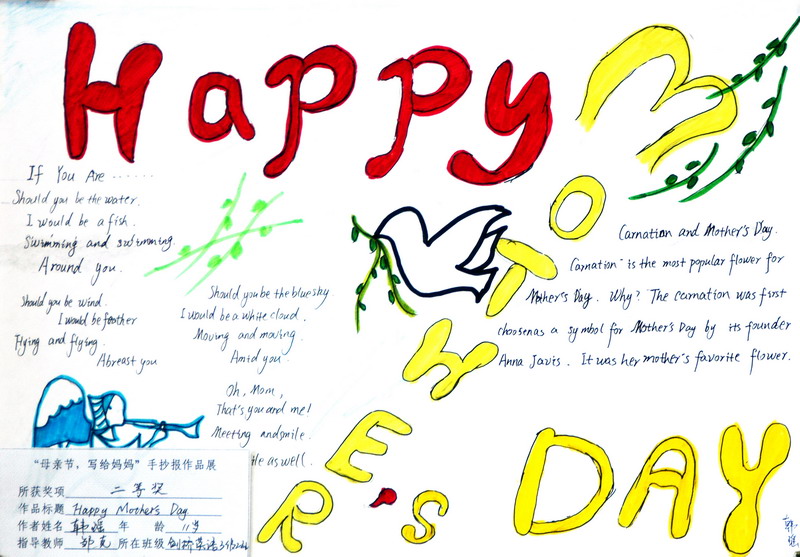 Happy
MOTHER's DAY
If You Are ......
Should you be the water.
I would be a fish.
Swimming and swimming.
Around you.
Should you be wind.
I would be feather
Flying and flying.
Abreast you
Should you be the blue sky.
I would be a white cloud.
Moving and moving.
Amid you.
Oh, Mom,
That's you and me!
Meeting and smile.
as well.
Carnation and Mother's Day.
Carnation is the most popular flower for
Mother's Day. Why? The carnation was first
choosenas a symbol for Mother's Day by its founder
Anna Javis. It was her mother's favorite flower.
“母亲节,写给妈妈”手抄报作品展
所获奖项 二等奖
作品标题 Happy Mother's Day
作者姓名 韩瑶 年 龄 11岁
指导教师 所在班级 剑桥英语
韩瑶